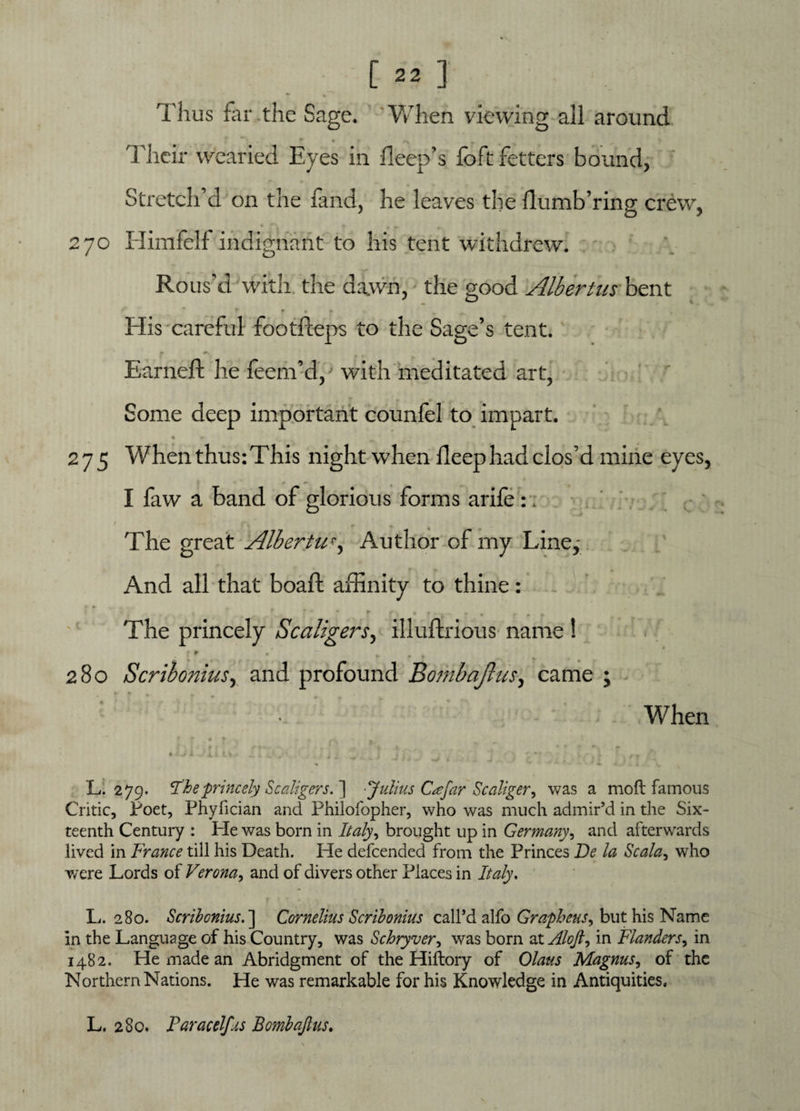 [ 22 ]
Thus far the Sage. When viewing all around
Their wearied Eyes in ſleep's ſoft fetters bound,
Stretch'd on the ſand, he leaves the ſlumb'ring crew,
270 Himſelf indignant to his tent withdrew.
Rous'd with the dawn, the good Albertus bent
His careful footſteps to the Sage's tent.
Earneſt he ſeem'd, with meditated art,
Some deep important counſel to impart.
275 When thus: This night when ſleep had clos'd mine eyes,
I ſaw a band of glorious forms ariſe :
The great Albertus, Author of my Line,
And all that boaſt affinity to thine :
The princely Scaligers, illuſtrious name !
280 Scribonius, and profound Bombaſtus, came ;
When
L. 279. The princely Scaligers. ] Julius Cæſar Scaliger, was a moſt famous
Critic, Poet, Phyſician and Philoſopher, who was much admir'd in the Six-
teenth Century : He was born in Italy, brought up in Germany, and afterwards
lived in France till his Death. He deſcended from the Princes De la Scala, who
were Lords of Verona, and of divers other Places in Italy.
L. 280. Scribonius. ] Cornelius Scribonius call'd alſo Grapheus, but his Name
in the Language of his Country, was Schryver, was born at Aloſt, in Flanders, in
1482. He made an Abridgment of the Hiſtory of Olaus Magnus, of the
Northern Nations. He was remarkable for his Knowledge in Antiquities.
L. 280. Paracelſus Bombaſtus.